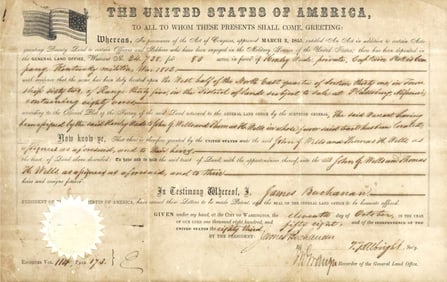 THE UNITED STATES OF AMERICA,
TO ALL TO WHOM THESE PRESENTS SHALL COME, GREETING:
Whereas, In pursuance of the Act of Congress, approved MARCH 3, 1855, entitled "An Act in addition to certain Acts
granting Bounty Land to certain Officers and Soldiers who have been engaged in the Military Service of the United States," there has been deposited in the
GENERAL LAND OFFICE, Warrant No. for 80 acres, in favor of private, Captain
Kentucky militia, War 1812
with evidence that the same has been duly located upon the West half of the North East quarter of section thirty one, in Town
ship sixty two, of Range thirty five, in the District of lands subject to sale at Plattsburg, Missouri,
containing eighty acres
according to the Official Plat of the Survey of the said Lands returned to the GENERAL LAND OFFICE by the SURVEYOR GENERAL. The said Warrant having
been assigned by the said to John J Wells and Thomas H Wells in whose favor said tract has been located
Now know ye, That there is therefore granted by the UNITED STATES unto the said John J Wells and Thomas H. Wells as
assignees as aforesaid, and to their heirs
the tract of Land above described: To have and to hold the said tract of Land, with the appurtenances thereof, unto the said John J Wells and Thomas
H. Wells as assignees as aforesaid, and to their
heirs and assigns forever.
In Testimony Whereof, I, James Buchanan
PRESIDENT OF THE UNITED STATES OF AMERICA, have caused these Letters to be made Patent, and the SEAL OF THE GENERAL LAND OFFICE to be hereunto affixed.
GIVEN under my hand, at the CITY OF WASHINGTON, the eleventh day of October, in the
YEAR OF OUR LORD one thousand eight hundred and fifty eight, and of the INDEPENDENCE OF THE
UNITED STATES the eighty third.
BY THE PRESIDENT: James Buchanan
Sec'y.
Recorder of the General Land Office.
RECORDED, VOL. PAGE 173